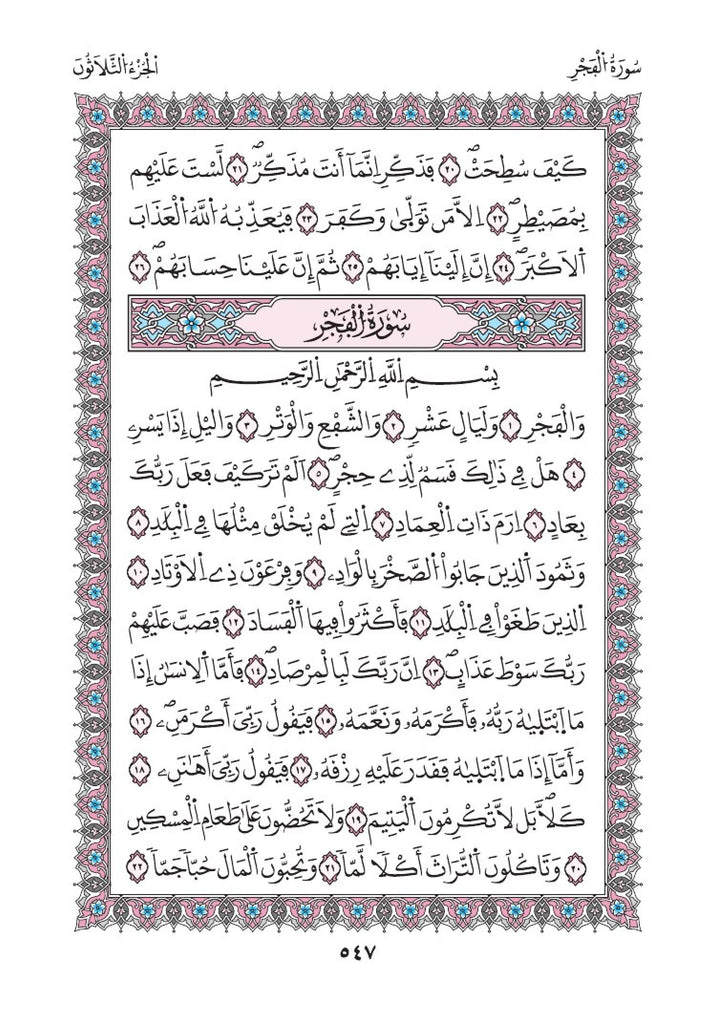 سُورَةُ الْفَجْرِ
الْجُزْءُ الثَّلَاثُونَ
كَيْفَ سُطِحَتْ ٢٠ فَذَكِّرِ اِنَّمَآ أَنتَ مُذَكِّرٌ ٢١ لَّسْتَ عَلَيْهِم
بِمُصَيْطِرٍ ٢٢ اِلَّا مَن تَوَلّٰى وَكَفَرَ ٢٣ فَيُعَذِّبُهُ اللَّهُ الْعَذَابَ
اَلَاكْبَرَ ٢٤ إِنَّ إِلَيْنَآ إِيَابَهُمْ ٢٥ ثُمَّ إِنَّ عَلَيْنَا حِسَابَهُمْ ٢٦
سُورَةُ الْفَجْرِ
بِسْمِ اِللَّهِ اِلرَّحْمَٰنِ اِلرَّحِيمِ
وَالْفَجْرِ ١ وَلَيَالٍ عَشْرٍ ٢ وَالشَّفْعِ وَالْوَتْرِ ٣ وَاليْلِ إِذَا يَسْرِۦ
٤ هَلْ فِي ذَٰلِكَ قَسَمٌ لِّذِے حِجْرٍ ٥ اَلَمْ تَرَ كَيْفَ فَعَلَ رَبُّكَ
بِعَادٍ ٦ اِرَمَ ذَاتِ اِلْعِمَادِ ٧ اِلتِي لَمْ يُخْلَقْ مِثْلُهَا فِي اِلْبِلَٰدِ ٨
وَثَمُودَ اَلذِينَ جَابُوا الصَّخْرَ بِالْوَادِۦ ٩ وَفِرْعَوْنَ ذِے اِلَاوْتَادِ ١٠
اِلذِينَ طَغَوْا فِي اِلْبِلَٰدِ ١١ فَأَكْثَرُوا فِيهَا اَلْفَسَادَ ١٢ فَصَبَّ عَلَيْهِمْ
رَبُّكَ سَوْطَ عَذَابٍ ١٣ اِنَّ رَبَّكَ لَبِالْمِرْصَادِ ١٤ فَأَمَّا اَلِانسَٰنُ إِذَا
مَا اَبْتَلَيٰهُ رَبُّهُۥ فَأَكْرَمَهُۥ وَنَعَّمَهُۥ ١٥ فَيَقُولُ رَبِّيَ أَكْرَمَنِۦ ١٦
وَأَمَّآ إِذَا مَا اَبْتَلَيٰهُ فَقَدَرَ عَلَيْهِ رِزْقَهُۥ ١٧ فَيَقُولُ رَبِّيَ أَهَٰنَنِۦ ١٨
كَلَّا بَل لَّا تُكْرِمُونَ اَلْيَتِيمَ ١٩ وَلَا تَحُضُّونَ عَلَىٰ طَعَامِ اِلْمِسْكِينِ
٢٠ وَتَأْكُلُونَ اَلتُّرَاثَ أَكْلًا لَّمًّا ٢١ وَتُحِبُّونَ اَلْمَالَ حُبًّا جَمًّا ٢٢
٥٤٧